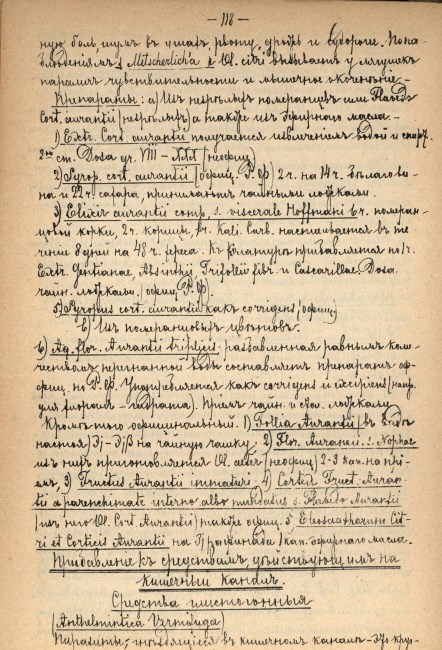 — 118 —
ную боль, шумъ въ ушахъ, рвоту, дрожь и судороги. По на-
блюденіямъ Mitscherlich'а Ol. citri вызываетъ у лягушекъ
параличъ чувствительности и мышечное окоченѣніе.
Препараты: а) Изъ незрѣлыхъ померанцевъ или Flavedo
Cort. aurantii (незрѣлыхъ), а также изъ эфирнаго масла.
1) Extr. Cort. aurantii получается извлеченіемъ водой и спирт.
Dosa gr. VIII — (неофиц.)
2) Syrop. cort. aurantii (офиц. Р. Ф.) 2 ч. на 14 ч. бѣлаго ви-
на и 22 ч. сахара, принимаютъ чайными ложками.
3) Elixir aurantii comp. s. viscerale Hoffmani 6 ч. померан-
цевой корки, 2 ч. корицы, Kali. Carb. настаивается въ те-
ченіи 8 дней на 48 ч. хереса. Къ прибавляется по 1 ч.
Extr. Gentianae, Absinthii, Trifolii fibr. и Cascarillae. Dosa
чайн. ложками (офиц. Р. Ф.).
5) Syropus cort. aurantii какъ corrigens (офиц.)
Изъ померанцовыхъ цвѣтковъ.
6) Aq. flor. Aurantii triplicis разбавленная равнымъ коли-
чествомъ перегнанной воды составляетъ препаратъ оф-
фиц. по Р. Ф. Употребляется какъ corrigens и excipiens (напр.
для хлорала - гидрата). Пріемъ чайн. и стол. ложками.
Кромѣ того официнальный: 1) Follia Aurantii (въ видѣ
настоя) на чайную чашку. 2) Flor. Aurantii s. Naphae
изъ нихъ приготовляется Ol. aether (неофиц.) 2-3 кап. на прі-
емъ. 3) Fructus Aurantii immaturi. 4) Cortex Fruct. Auran-
tii a parenchimate interno albo mundatus s. Flavedo Aurantii
(изъ него Ol. Cort. Aurantii) также офиц. 5) Eleosaccharum Cit-
ri et Corticis Aurantii на кап. эфирнаго масла.
Прибавленіе къ средствамъ, дѣйствующимъ на
кишечный каналъ.
Средства глистогонныя
(Anthelmintica Vermifuga)
Паразиты, гнѣздящіеся въ кишечномъ каналѣ — это круг-